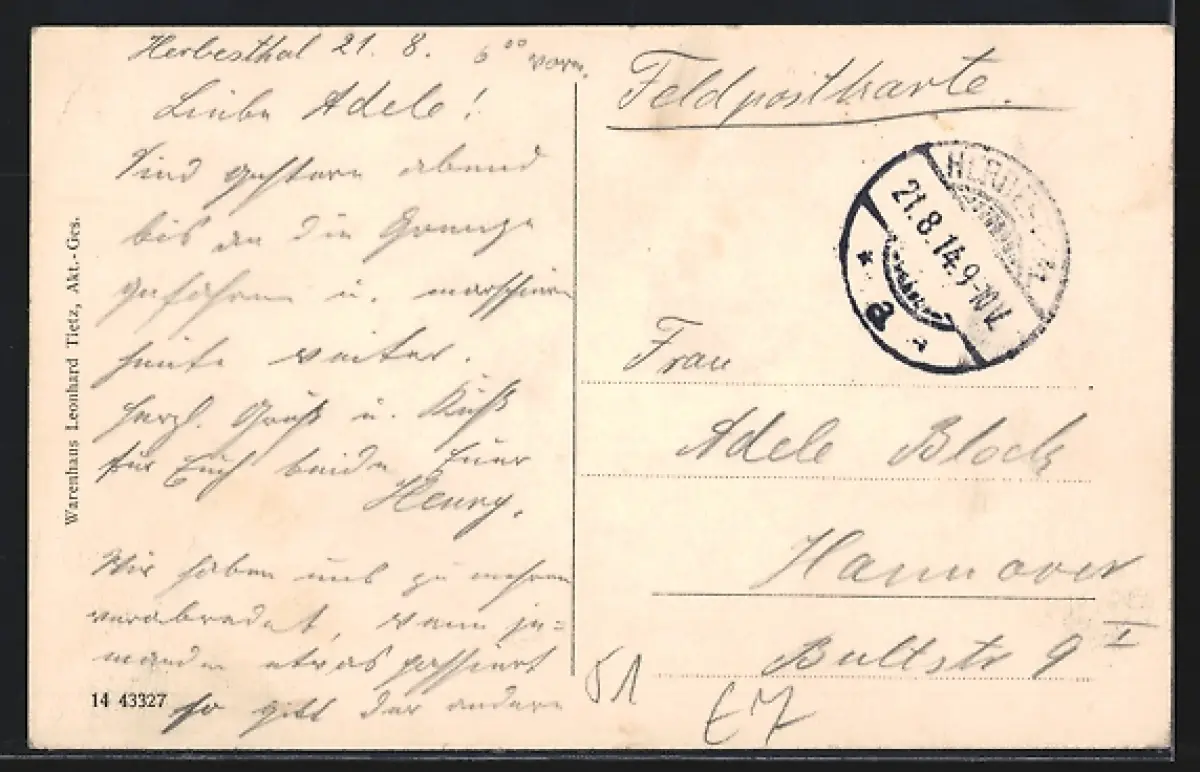 Herbesthal 21. 8. 6⁰⁰ vorm.
Liebe Adele!
Sind gestern abend
bis an die Grenze
gefahren u. marschieren
heute weiter.
Herzl. Gruß u. Kuß
für Euch beide Euer
Henry.
Wir haben uns zu mehren
verabredet, wenn je=
manden etwas passiert
so gibt der andere
14 43327
Warenhaus Leonhard Tietz, Akt.-Ges.
Feldpostkarte.
21.8.14.9-10V.
* a
Frau
Adele Block
Hannover
Bultstr 9 I
51